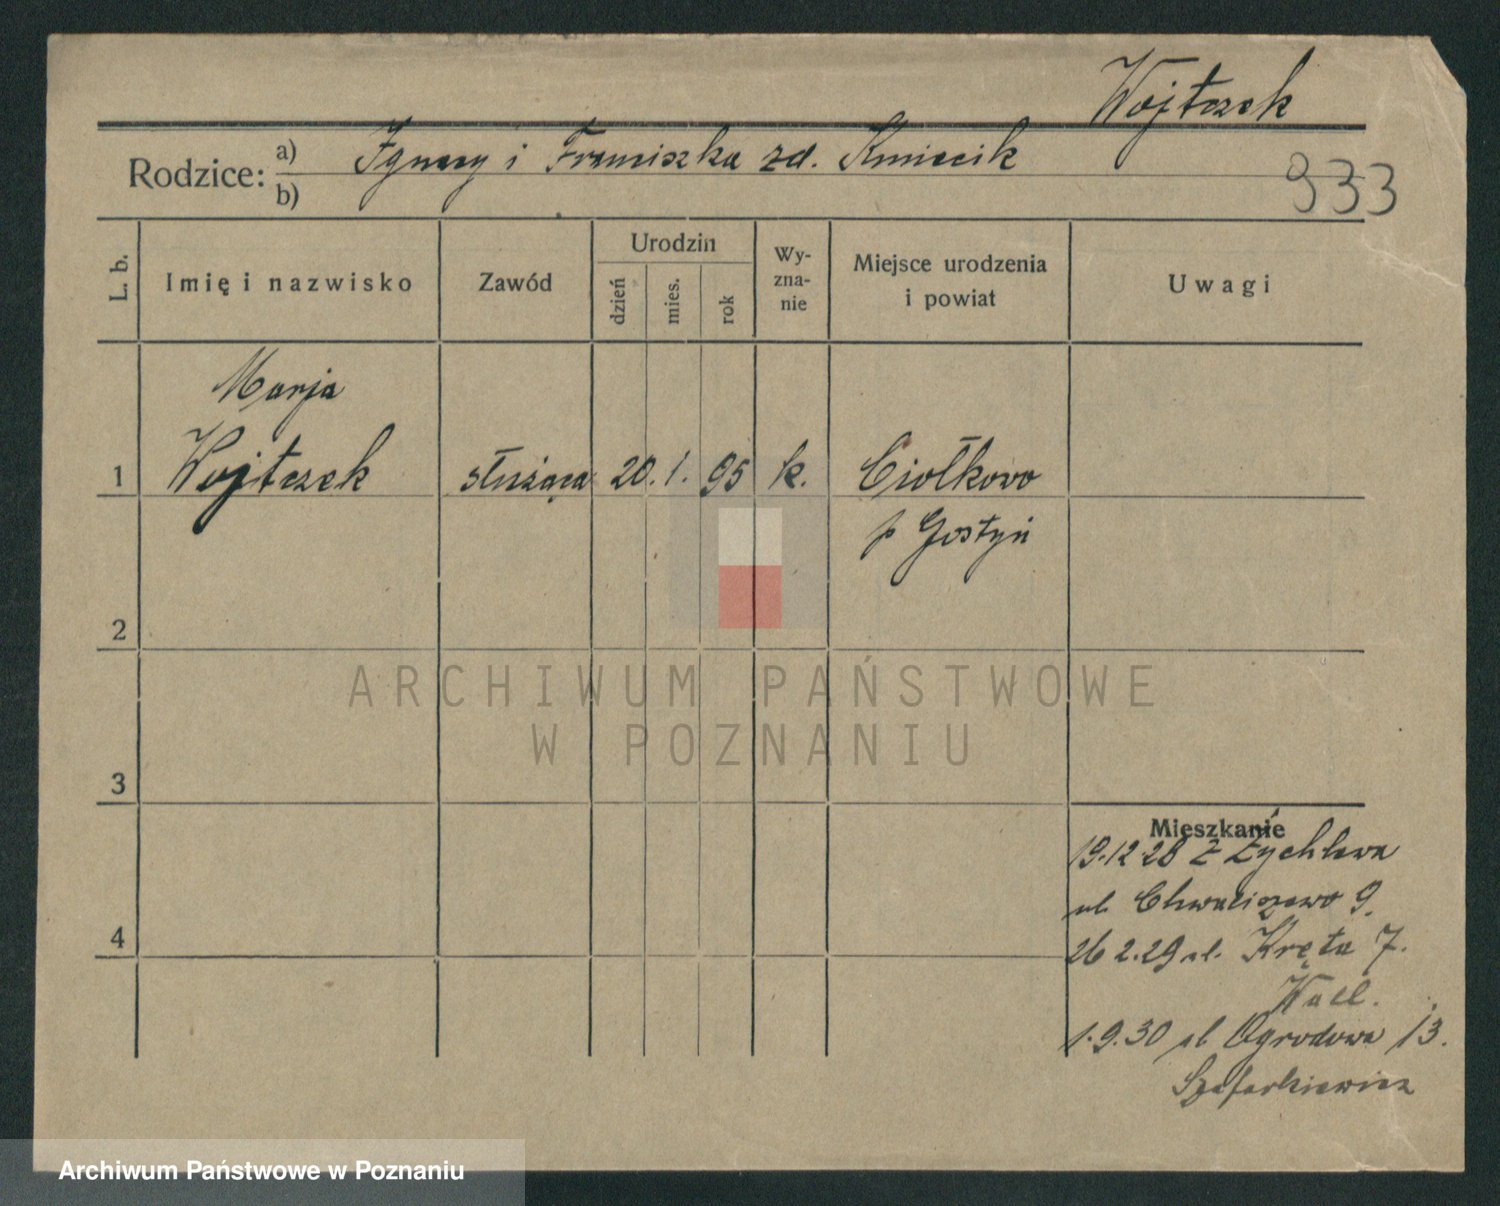 Wojtczek
Rodzice: a) Ignacy i Franciszka zd. Kmiecik
b)
933
L. b. Imię i nazwisko Zawód Urodzin dzień mies. rok Wy-zna-nie Miejsce urodzenia i powiat Uwagi
Marja
1 Wojtczek służąca 20. 1. 95 k. Ciołkowo
p Gostyń
2
ARCHIWUM PAŃSTWOWE
W POZNANIU
3
Mieszkanie
19.12 28 z Żychlewa
ul. Chwaliszewo 9.
4
26 2.29 ul. Kręta 7.
1.9.30 ul Ogrodowa 13.
Szafarkiewicz
Archiwum Państwowe w Poznaniu